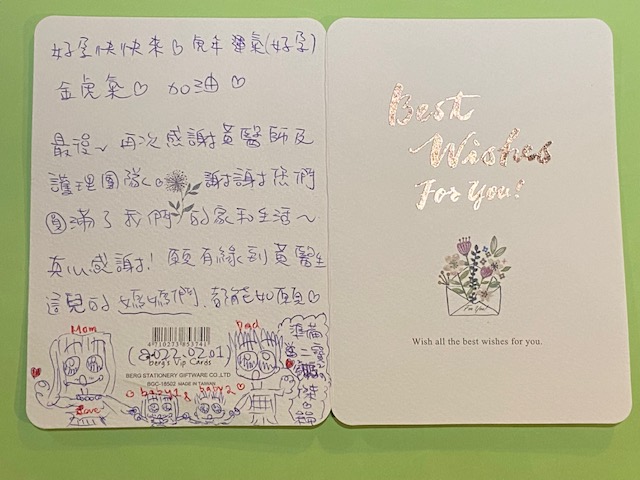 好孕快快來♡虎年 運氣(好孕)
金虎氣♡ 加油♡
最後~再次感謝黃醫師及
護理團隊。謝謝您們
圓滿了我們的家和生活~
真心感謝! 願有緣到黃醫生
這兒的媽媽們,都能如願♡
Mom
Dad
Love
4710273853741
(2022.02.01)
berg's Vip Cards
BERG STATIONERY GIFTWARE CO.,LTD
BGC-16502 MADE IN TAIWAN
baby1 & baby2
準備
二寶
Best
Wishes
For You!
For You!
Wish all the best wishes for you.